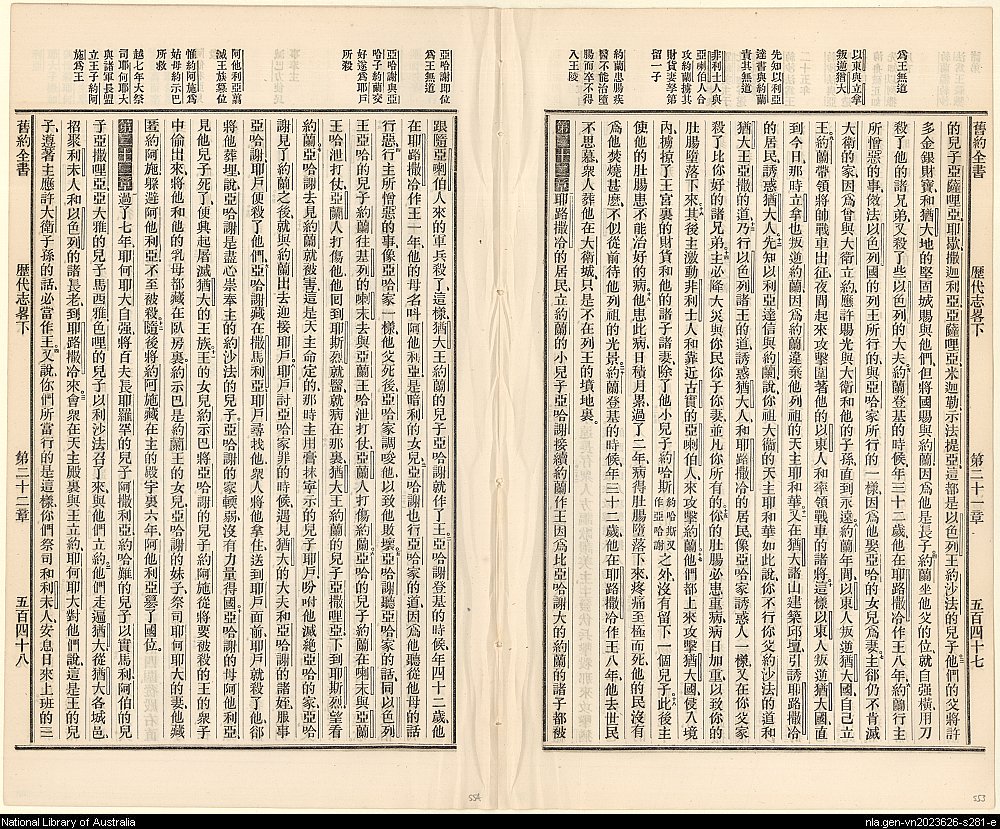 爲王無道
以東與立拿
叛逆猶大
先知以利亞
達書與約蘭
責其無道
非利士人與
亞喇伯人合
攻約蘭擄其
財貨妻孥第
留一子
約蘭患腸疾
醫不能治墮
腸而卒不得
入王陵
舊約全書 歷代志畧下 第二十一章 五百四十七
的兒子亞薩哩亞耶歇撒迦利亞亞薩哩亞米迦勒示法提亞這都是以色列王約沙法的兒子他們的父將許
多金銀財寶和猶大地的堅固城賜與他們但將國賜與約蘭因爲他是長子約蘭坐他父的位就自强橫用刀
殺了他的諸兄弟又殺了些以色列的大夫約蘭登基的時候年三十二歲他在耶路撒冷作王八年約蘭行主
所憎惡的事傚法以色列國的列王所行的與亞哈家所行的一樣因爲他娶亞哈的女兒爲妻主郤仍不肯滅
大衛的家因爲曾與大衛立約應許賜光與大衛和他的子孫直到永遠約蘭年間以東人叛逆猶大國自己立
王約蘭帶領將帥戰車出征夜間起來攻擊圍著他的以東人和率領戰車的諸將這樣以東人叛逆猶大國直
到今日那時立拿也叛逆約蘭因爲約蘭違棄他列祖的天主耶和華又在猶大諸山建築邱壇引誘耶路撒冷
的居民誘惑猶大人先知以利亞達信與約蘭說你祖大衛的天主耶和華如此說你不行你父約沙法的道和
猶大王亞撒的道乃行以色列諸王的道誘惑猶大人和耶路撒冷的居民像亞哈家誘惑人一樣又在你父家
殺了比你好的諸兄弟主必降大災與你民你子你妻並凡你所有的你的肚腸必患重病病日加重以致你的
肚腸墮落下來其後主激動非利士人和靠近古實的亞喇伯人來攻擊約蘭他們都上來攻擊猶大國侵入境
內擄掠了王宮裏的財貨和他的諸子諸妻除了他小兒子約哈斯約哈斯又作亞哈謝之外沒有留下一個兒子此後主
使他的肚腸患不能治好的病他患此病日積月累過了二年病得肚腸墮落下來疼痛至極而死他的民沒有
爲他焚燒甚麽不似從前待他列祖的光景約蘭登基的時候年三十二歲他在耶路撒冷作王八年他去世民
不思慕衆人葬他在大衛城只是不在列王的墳地裏
第二十二章耶路撒冷的居民立約蘭的小兒子亞哈謝接續約蘭作王因爲比亞哈謝大的約蘭的兒子都被
亞哈謝即位
爲王無道
亞哈謝與亞
哈子約蘭交
好遂爲耶戶
所殺
阿他利亞翦
滅王族篡位
惟約阿施爲
姑母約示巴
所救
越七年大祭
司耶何耶大
與諸軍長盟
立王子約阿
施爲王
跟隨亞喇伯人來的軍兵殺了這樣猶大王約蘭的兒子亞哈謝就作了王亞哈謝登基的時候年四十二歲他
在耶路撒冷作王一年他的母名呌阿他利亞是暗利的女兒亞哈謝也行亞哈家的道因爲他聽從他母的話
行惡行主所憎惡的事像亞哈家一樣他父死後亞哈家調唆他以致他敗壞亞哈謝聽亞哈家的話同以色列
王亞哈的兒子約蘭往基列的喇末去與亞蘭王哈泄打仗亞蘭人打傷約蘭亞哈的兒子約蘭在喇末與亞蘭
王哈泄打仗亞蘭人打傷他囘到耶斯烈就醫就病在那裏猶大王約蘭的兒子亞撒哩亞下到耶斯烈望看
約蘭亞哈謝去見約蘭就被害這是天主命定的那時主用膏抹寧示的兒子耶戶吩咐他滅絕亞哈的家亞哈
謝見了約蘭之後就與約蘭出去迎接耶戶耶戶討亞哈家罪的時候遇見猶大的大夫和亞哈謝的諸姪服事
亞哈謝耶戶便殺了他們亞哈謝藏在撒馬利亞耶戶尋找他衆人將他拿住送到耶戶面前耶戶就殺了他郤
將他葬埋說亞哈謝是盡心崇奉主的約沙法的兒子亞哈謝的家輭弱沒有力量得國亞哈謝的母阿他利亞
見他兒子死了便興起屠滅猶大的王族王的女兒約示巴將亞哈謝的兒子約阿施從將要被殺的王的衆子
中偷出來將他和他的乳母都藏在臥房裏約示巴是約蘭王的女兒亞哈謝的妹子祭司耶何耶大的妻他藏
匿約阿施躱避阿他利亞不至被殺隨後將約阿施藏在主的殿宇裏六年阿他利亞篡了國位
第二十三章過了七年耶何耶大自强將百夫長耶羅罕的兒子阿撒利亞約哈難的兒子以實馬利阿伯的兒
子亞撒哩亞亞大雅的兒子馬西雅色哩的兒子以利沙法召了來與他們立約他們走遍猶大從猶大各城邑
招聚利未人和以色列的諸長老到耶路撒冷來會衆在天主殿裏與王立約耶何耶大對他們說這是王的兒
子遵著主應許大衛子孫的話必當作王又說你們所當行的是這樣你們祭司和利未人安息日來上班的三
舊約全書 歷代志畧下 第二十二章 五百四十八
554
553
National Library of Australia
nla.gen-vn2023626-s281-e